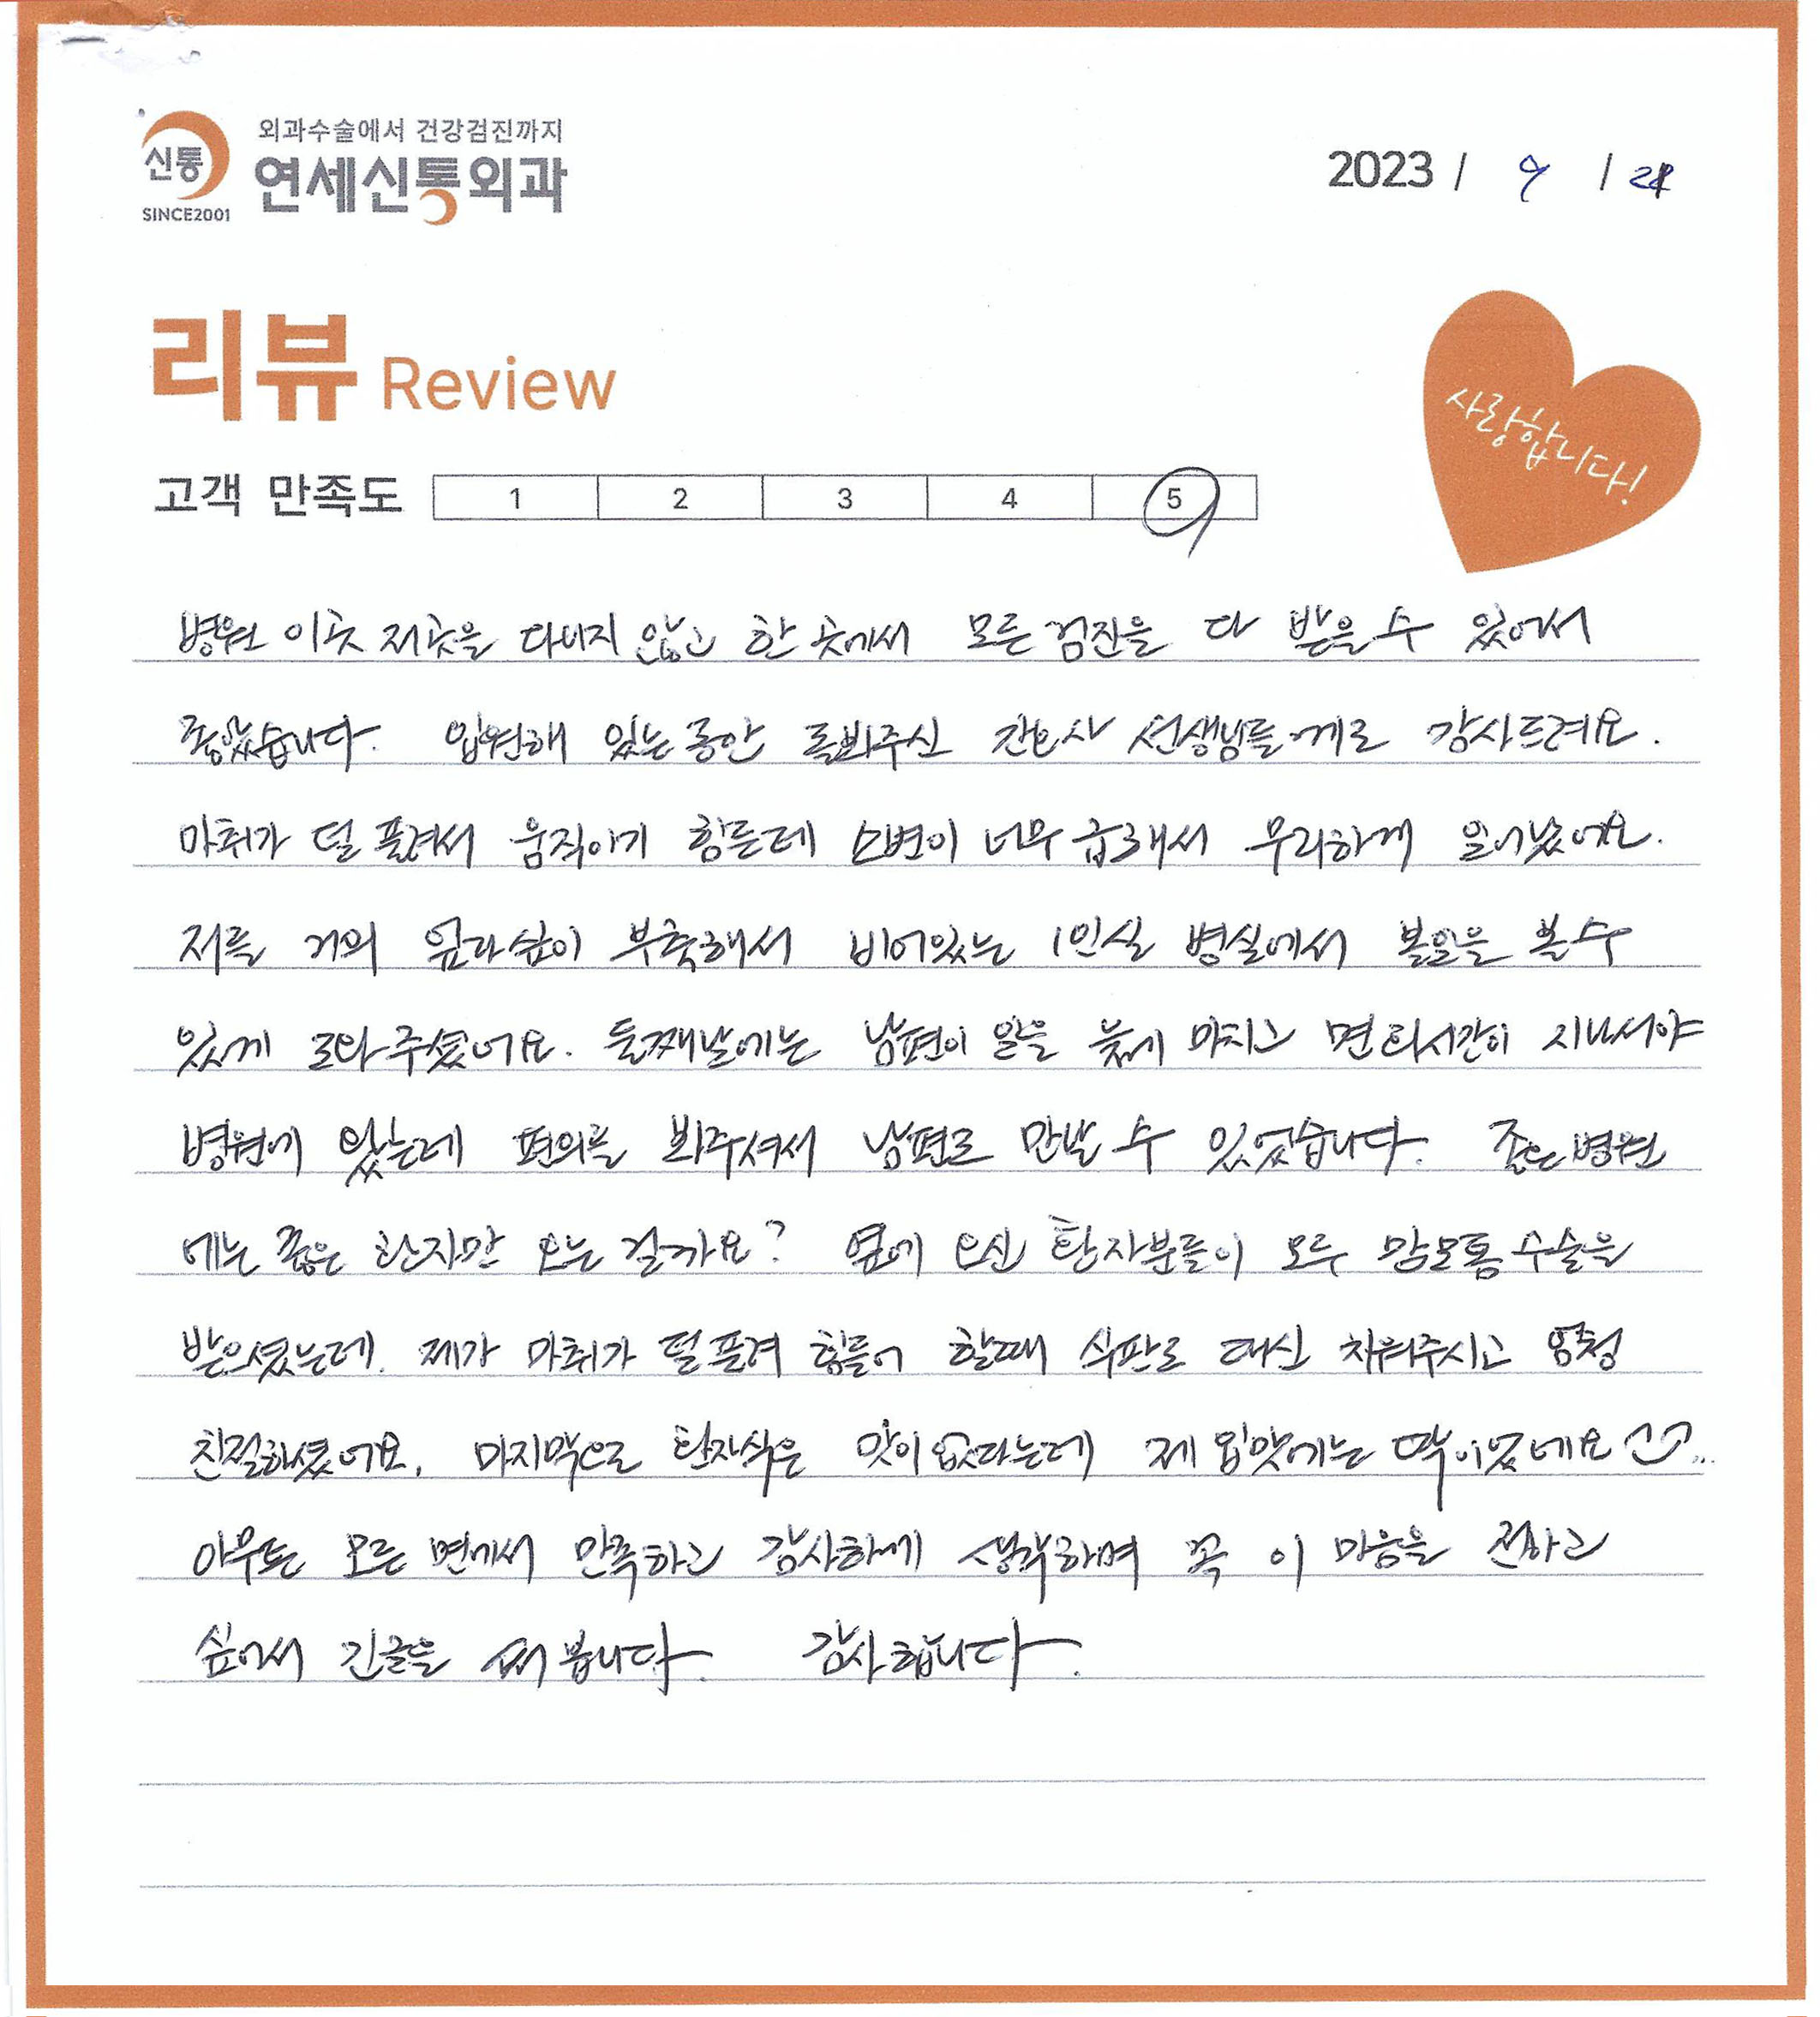 외과수술에서 건강검진까지
신통
연세신통외과
SINCE2001
2023 / 9 / 21
리뷰 Review
사랑합니다!
고객 만족도 1 2 3 4 5
병원 이곳 저곳을 다니지 않고 한 곳에서 모든 검진을 다 받을 수 있어서
좋았습니다. 입원해 있는 동안 돌봐주신 간호사 선생님들께도 감사드려요.
마취가 덜 풀려서 움직이기 힘든데 소변이 너무 급해서 무리하게 일어났어요.
저를 거의 엎다싶이 부축해서 비어있는 1인실 병실에서 볼일을 볼 수
있게 도와주셨어요. 둘째날에는 남편이 일을 늦게 마치고 면회시간이 지나서야
병원에 왔는데 편의를 봐주셔서 남편도 만날 수 있었습니다. 좋은 병원
에는 좋은 환자만 오는 걸까요? 옆에 오신 환자분들이 모두 맘모톰 수술을
받으셨는데. 제가 마취가 덜 풀려 힘들어 할때 식판도 대신 치워주시고 엄청
친절하셨어요. 마지막으로 환자식은 맛이 없다는데 제 입맛에는 딱이었네요
아무튼 모든 면에서 만족하고 감사하게 생각하며 꼭 이 마음을 전하고
싶어서 긴글을 써 봅니다. 감사합니다.